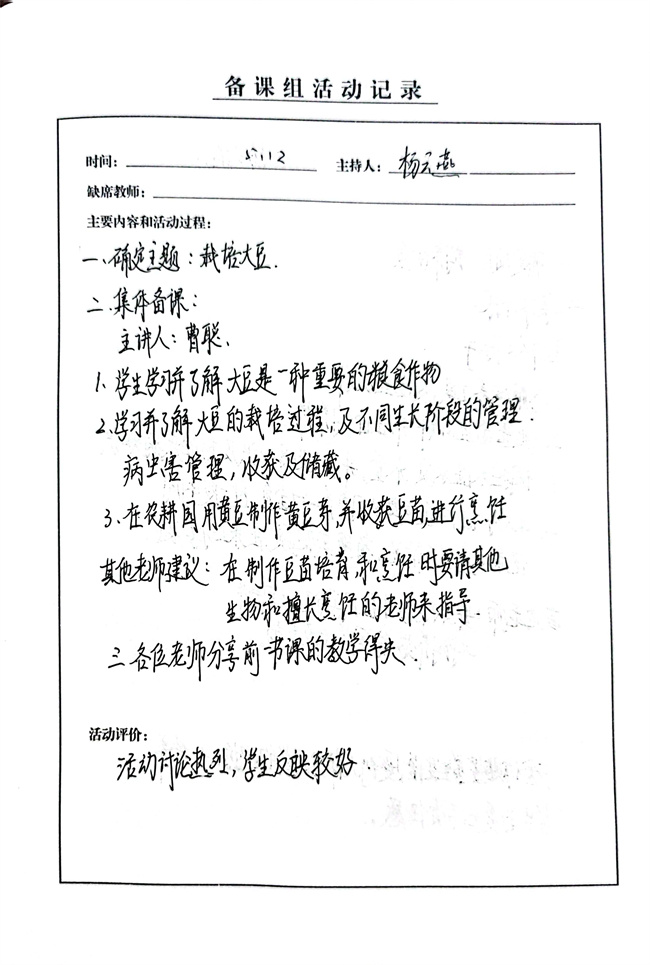 备课组活动记录
时间： 5.12 主持人：杨云燕
缺席教师：
主要内容和活动过程：
一、确定主题：栽培大豆.
二、集体备课：
主讲人：曹聪.
1. 学生学习并了解大豆是一种重要的粮食作物
2. 学习并了解大豆的栽培过程，及不同生长阶段的管理.
病虫害管理，收获及储藏。
3. 在农耕园用黄豆制作黄豆芽，并收获豆苗，进行烹饪
其他老师建议：在制作豆苗培育，和烹饪时要请其他
生物和擅长烹饪的老师来指导.
三、各位老师分享前一节课的教学得失.
活动评价：
活动讨论热烈，学生反映较好.